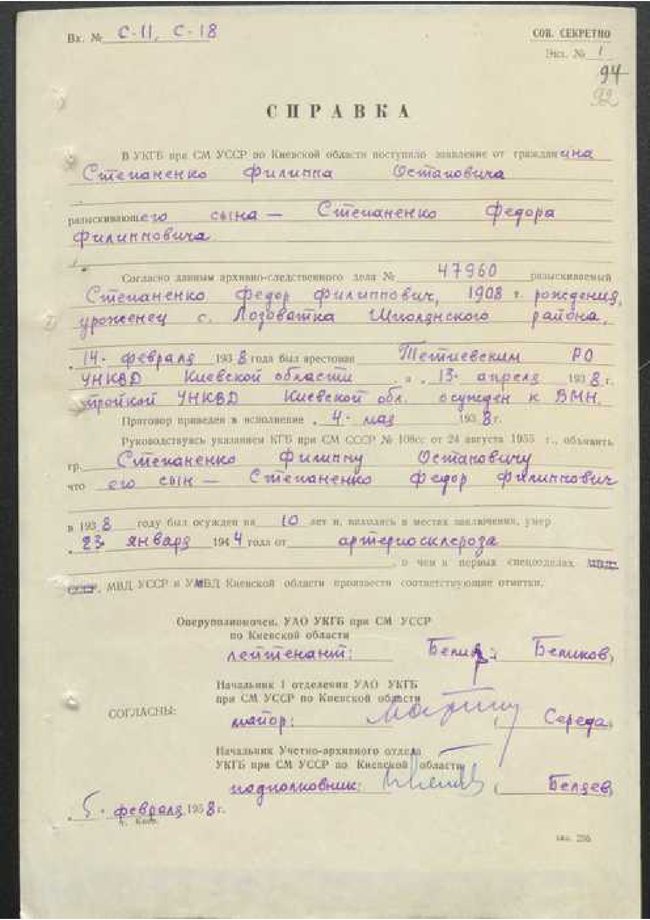 Вх. № С-11, С-18
СОВ. СЕКРЕТНО
Экз. № 1
94
92
СПРАВКА
В УКГБ при СМ УССР по Киевской области поступило заявление от гражданина
Степаненко Филиппа Остаповича
разыскивающего сына — Степаненко Федора
Филипповича
Согласно данным архивно-следственного дела № 47960 разыскиваемый
Степаненко Федор Филиппович, 1908 г. рождения,
уроженец с. Лозоватка Шполянского района,
„14" февраля 1938 года был арестован Тетиевским РО
УНКВД Киевской области и „13" апреля 1938 г.
тройкой УНКВД Киевской обл. осужден к ВМН.
Приговор приведен в исполнение „4" мая 1938 г.
Руководствуясь указанием КГБ при СМ СССР № 108сс от 24 августа 1955 г., объявить
гр. Степаненко Филиппу Остаповичу
что его сын — Степаненко Федор Филиппович
в 1938 году был осужден на 10 лет и, находясь в местах заключения, умер
„23" января 1944 года от артериосклероза
, о чем в первых спецотделах
МВД УССР и УМВД Киевской области произвести соответствующие отметки.
Оперуполномочен. УАО УКГБ при СМ УССР
по Киевской области
лейтенант: Беликов
Начальник 1 отделения УАО УКГБ
при СМ УССР по Киевской области
СОГЛАСНЫ:
майор: Середа
Начальник Учетно-архивного отдела
УКГБ при СМ УССР по Киевской области
подполковник: Беляев
„5" февраля 1958 г.
г. Киев.
зак. 286